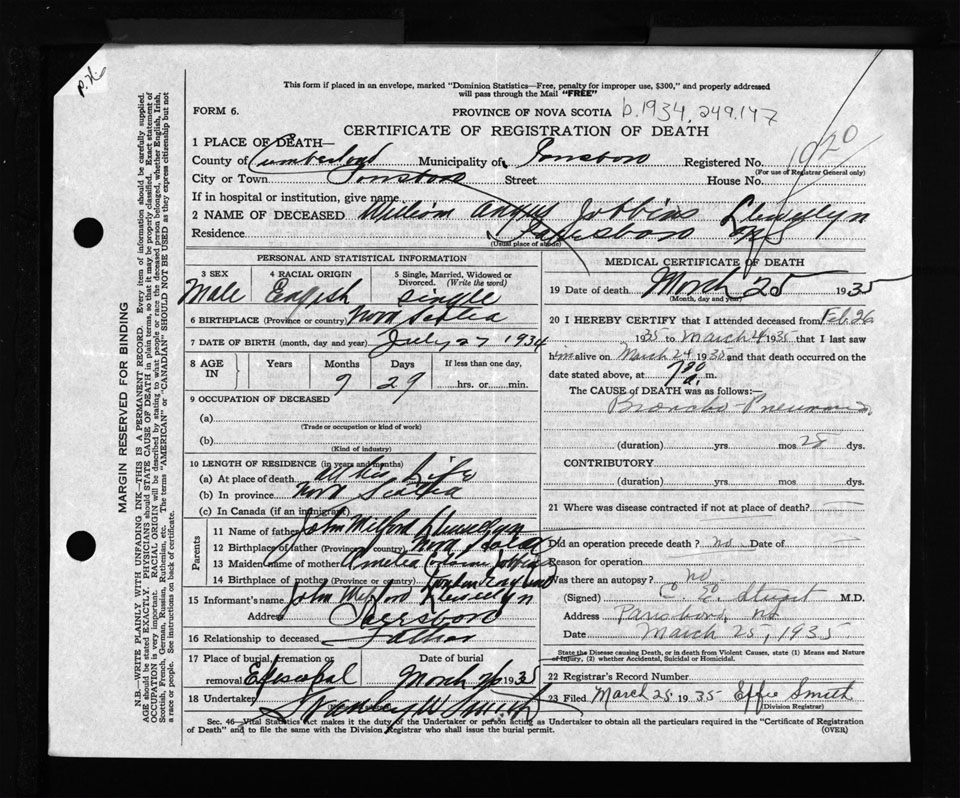 P.H.
This form if placed in an envelope, marked "Dominion Statistics—Free, penalty for improper use, $300," and properly addressed
will pass through the Mail "FREE"
FORM 6.
PROVINCE OF NOVA SCOTIA b.1934, 249.147
CERTIFICATE OF REGISTRATION OF DEATH
1 PLACE OF DEATH—
County of Cumberland Municipality of Registered No. 1920
(For use of Registrar General only)
City or Town Street House No.
If in hospital or institution, give name
2 NAME OF DECEASED William Angus Jobbins Llewellyn
Residence Parrsboro NS
(Usual place of abode)
PERSONAL AND STATISTICAL INFORMATION
3 SEX 4 RACIAL ORIGIN 5 Single, Married, Widowed or
Divorced. (Write the word)
Male English Single
6 BIRTHPLACE (Province or country) Nova Scotia
7 DATE OF BIRTH (month, day and year) July 27 1934
8 AGE IN Years Months Days If less than one day,
9 29 hrs. or min.
9 OCCUPATION OF DECEASED
(a)
(Trade or occupation or kind of work)
(b)
(Kind of industry)
10 LENGTH OF RESIDENCE (in years and months)
(a) At place of death Life
(b) In province Nova Scotia
(c) In Canada (if an immigrant)
Parents
11 Name of father John Milford Llewellyn
12 Birthplace of father (Province or country) Nova Scotia
13 Maiden name of mother Amelia Jobbins
14 Birthplace of mother (Province or country) London England
15 Informant's name John Milford Llewellyn
Address Parrsboro
16 Relationship to deceased Father
17 Place of burial, cremation or removal Date of burial
Episcopal March 26 1935
18 Undertaker Smith
MEDICAL CERTIFICATE OF DEATH
19 Date of death March 25 1935
(Month, day and year)
20 I HEREBY CERTIFY that I attended deceased from Feb. 26
1935 to March 24 1935 that I last saw
him alive on March 24 1935 and that death occurred on the
date stated above, at 7 a. m.
The CAUSE OF DEATH was as follows:—
Broncho-Pneumonia
(duration) yrs. mos. 28 dys.
CONTRIBUTORY
(duration) yrs. mos. dys.
21 Where was disease contracted if not at place of death?
Did an operation precede death? no Date of
Reason for operation
Was there an autopsy? no
(Signed) M.D.
Address Parrsboro, NS
Date March 25, 1935
State the Disease causing Death, or in death from Violent Causes, state (1) Means and Nature
of Injury, (2) whether Accidental, Suicidal or Homicidal.
22 Registrar's Record Number
23 Filed March 25 1935 Effie Smith
(Division Registrar)
Sec. 46—Vital Statistics Act makes it the duty of the Undertaker or person acting as Undertaker to obtain all the particulars required in the "Certificate of Registration
of Death" and to file the same with the Division Registrar who shall issue the burial permit. (OVER)
MARGIN RESERVED FOR BINDING
N.B.—WRITE PLAINLY WITH UNFADING INK—THIS IS A PERMANENT RECORD. Every item of information should be carefully supplied.
AGE should be stated EXACTLY. PHYSICIANS should STATE CAUSE OF DEATH in plain terms, so that it may be properly classified. Exact statement of
OCCUPATION is very important. RACIAL ORIGIN will be described by stating to what people or race the deceased person belonged, whether English, Irish,
Scottish, French, German, Russian, Ruthenian, etc. The terms "AMERICAN" or "CANADIAN" SHOULD NOT BE USED as they express citizenship but not
a race or people. See instructions on back of certificate.